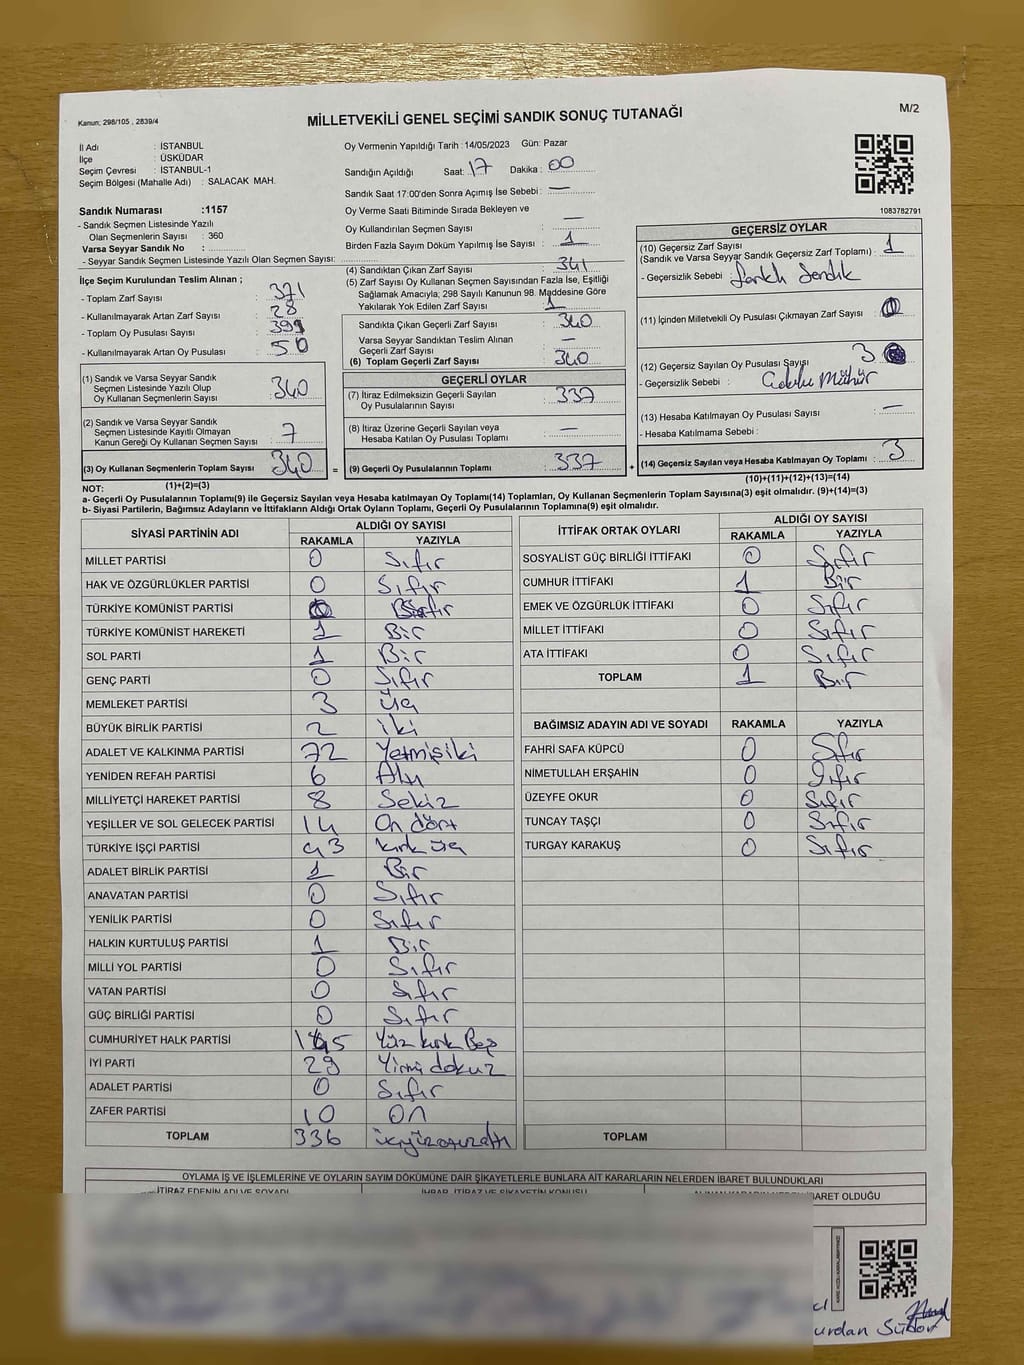 Kanun; 298/105 , 2839/4
MİLLETVEKİLİ GENEL SEÇİMİ SANDIK SONUÇ TUTANAĞI
M/2
İl Adı : İSTANBUL
İlçe : ÜSKÜDAR
Seçim Çevresi : İSTANBUL-1
Seçim Bölgesi (Mahalle Adı) : SALACAK MAH.
Sandık Numarası :1157
- Sandık Seçmen Listesinde Yazılı
Olan Seçmenlerin Sayısı : 360
Varsa Seyyar Sandık No :
- Seyyar Sandık Seçmen Listesinde Yazılı Olan Seçmen Sayısı:
İlçe Seçim Kurulundan Teslim Alınan ;
- Toplam Zarf Sayısı : 371
- Kullanılmayarak Artan Zarf Sayısı : 28
- Toplam Oy Pusulası Sayısı : 391
- Kullanılmayarak Artan Oy Pusulası : 50
(1) Sandık ve Varsa Seyyar Sandık
Seçmen Listesinde Yazılı Olup
Oy Kullanan Seçmenlerin Sayısı : 340
(2) Sandık ve Varsa Seyyar Sandık
Seçmen Listesinde Kayıtlı Olmayan
Kanun Gereği Oy Kullanan Seçmen Sayısı : 7
(3) Oy Kullanan Seçmenlerin Toplam Sayısı : 340
(1)+(2)=(3)
Oy Vermenin Yapıldığı Tarih : 14/05/2023 Gün: Pazar
Sandığın Açıldığı Saat: 17 Dakika : 00
Sandık Saat 17:00'den Sonra Açımış İse Sebebi : —
Oy Verme Saati Bitiminde Sırada Bekleyen ve
Oy Kullandırılan Seçmen Sayısı : —
Birden Fazla Sayım Döküm Yapılmış İse Sayısı : 1
(4) Sandıktan Çıkan Zarf Sayısı : 341
(5) Zarf Sayısı Oy Kullanan Seçmen Sayısından Fazla İse, Eşitliği
Sağlamak Amacıyla; 298 Sayılı Kanunun 98. Maddesine Göre
Yakılarak Yok Edilen Zarf Sayısı : 1
Sandıkta Çıkan Geçerli Zarf Sayısı : 340
Varsa Seyyar Sandıktan Teslim Alınan
Geçerli Zarf Sayısı : —
(6) Toplam Geçerli Zarf Sayısı : 340
GEÇERLİ OYLAR
(7) İtiraz Edilmeksizin Geçerli Sayılan
Oy Pusulalarının Sayısı : 337
(8) İtiraz Üzerine Geçerli Sayılan veya
Hesaba Katılan Oy Pusulası Toplamı : —
= (9) Geçerli Oy Pusulalarının Toplamı : 337 +
1083782791
GEÇERSİZ OYLAR
(10) Geçersiz Zarf Sayısı
(Sandık ve Varsa Seyyar Sandık Geçersiz Zarf Toplamı) : 1
- Geçersizlik Sebebi : farklı Sandık
(11) İçinden Milletvekili Oy Pusulası Çıkmayan Zarf Sayısı : 0
(12) Geçersiz Sayılan Oy Pusulası Sayısı : 3
- Geçersizlik Sebebi : Çoklu Mühür
(13) Hesaba Katılmayan Oy Pusulası Sayısı : —
- Hesaba Katılmama Sebebi :
(14) Geçersiz Sayılan veya Hesaba Katılmayan Oy Toplamı : 3
(10)+(11)+(12)+(13)=(14)
NOT:
a- Geçerli Oy Pusulalarının Toplamı(9) ile Geçersiz Sayılan veya Hesaba katılmayan Oy Toplamı(14) Toplamları, Oy Kullanan Seçmenlerin Toplam Sayısına(3) eşit olmalıdır. (9)+(14)=(3)
b- Siyasi Partilerin, Bağımsız Adayların ve İttifakların Aldığı Ortak Oyların Toplamı, Geçerli Oy Pusulalarının Toplamına(9) eşit olmalıdır.
SİYASİ PARTİNİN ADI ALDIĞI OY SAYISI
RAKAMLA YAZIYLA
MİLLET PARTİSİ 0 Sıfır
HAK VE ÖZGÜRLÜKLER PARTİSİ 0 Sıfır
TÜRKİYE KOMÜNİST PARTİSİ 0 Sıfır
TÜRKİYE KOMÜNİST HAREKETİ 1 Bir
SOL PARTİ 1 Bir
GENÇ PARTİ 0 Sıfır
MEMLEKET PARTİSİ 3 üç
BÜYÜK BİRLİK PARTİSİ 2 iki
ADALET VE KALKINMA PARTİSİ 72 Yetmişiki
YENİDEN REFAH PARTİSİ 6 Altı
MİLLİYETÇİ HAREKET PARTİSİ 8 Sekiz
YEŞİLLER VE SOL GELECEK PARTİSİ 14 On dört
TÜRKİYE İŞÇİ PARTİSİ 43 kırk üç
ADALET BİRLİK PARTİSİ 1 Bir
ANAVATAN PARTİSİ 0 Sıfır
YENİLİK PARTİSİ 0 Sıfır
HALKIN KURTULUŞ PARTİSİ 1 Bir
MİLLİ YOL PARTİSİ 0 Sıfır
VATAN PARTİSİ 0 Sıfır
GÜÇ BİRLİĞİ PARTİSİ 0 Sıfır
CUMHURİYET HALK PARTİSİ 145 Yüz kırk Beş
İYİ PARTİ 29 Yirmi dokuz
ADALET PARTİSİ 0 Sıfır
ZAFER PARTİSİ 10 ON
TOPLAM 336 üçyüzotuzaltı
İTTİFAK ORTAK OYLARI ALDIĞI OY SAYISI
RAKAMLA YAZIYLA
SOSYALİST GÜÇ BİRLİĞİ İTTİFAKI 0 Sıfır
CUMHUR İTTİFAKI 1 Bir
EMEK VE ÖZGÜRLÜK İTTİFAKI 0 Sıfır
MİLLET İTTİFAKI 0 Sıfır
ATA İTTİFAKI 0 Sıfır
TOPLAM 1 Bir
BAĞIMSIZ ADAYIN ADI VE SOYADI RAKAMLA YAZIYLA
FAHRİ SAFA KÜPCÜ 0 Sıfır
NİMETULLAH ERŞAHİN 0 Sıfır
ÜZEYFE OKUR 0 Sıfır
TUNCAY TAŞÇI 0 Sıfır
TURGAY KARAKUŞ 0 Sıfır
TOPLAM
OYLAMA İŞ VE İŞLEMLERİNE VE OYLARIN SAYIM DÖKÜMÜNE DAİR ŞİKAYETLERLE BUNLARA AİT KARARLARIN NELERDEN İBARET BULUNDUKLARI
İTİRAZ EDENİN ADI VE SOYADI İHBAR, İTİRAZ VE ŞİKAYETİN KONUSU İBARET OLDUĞU